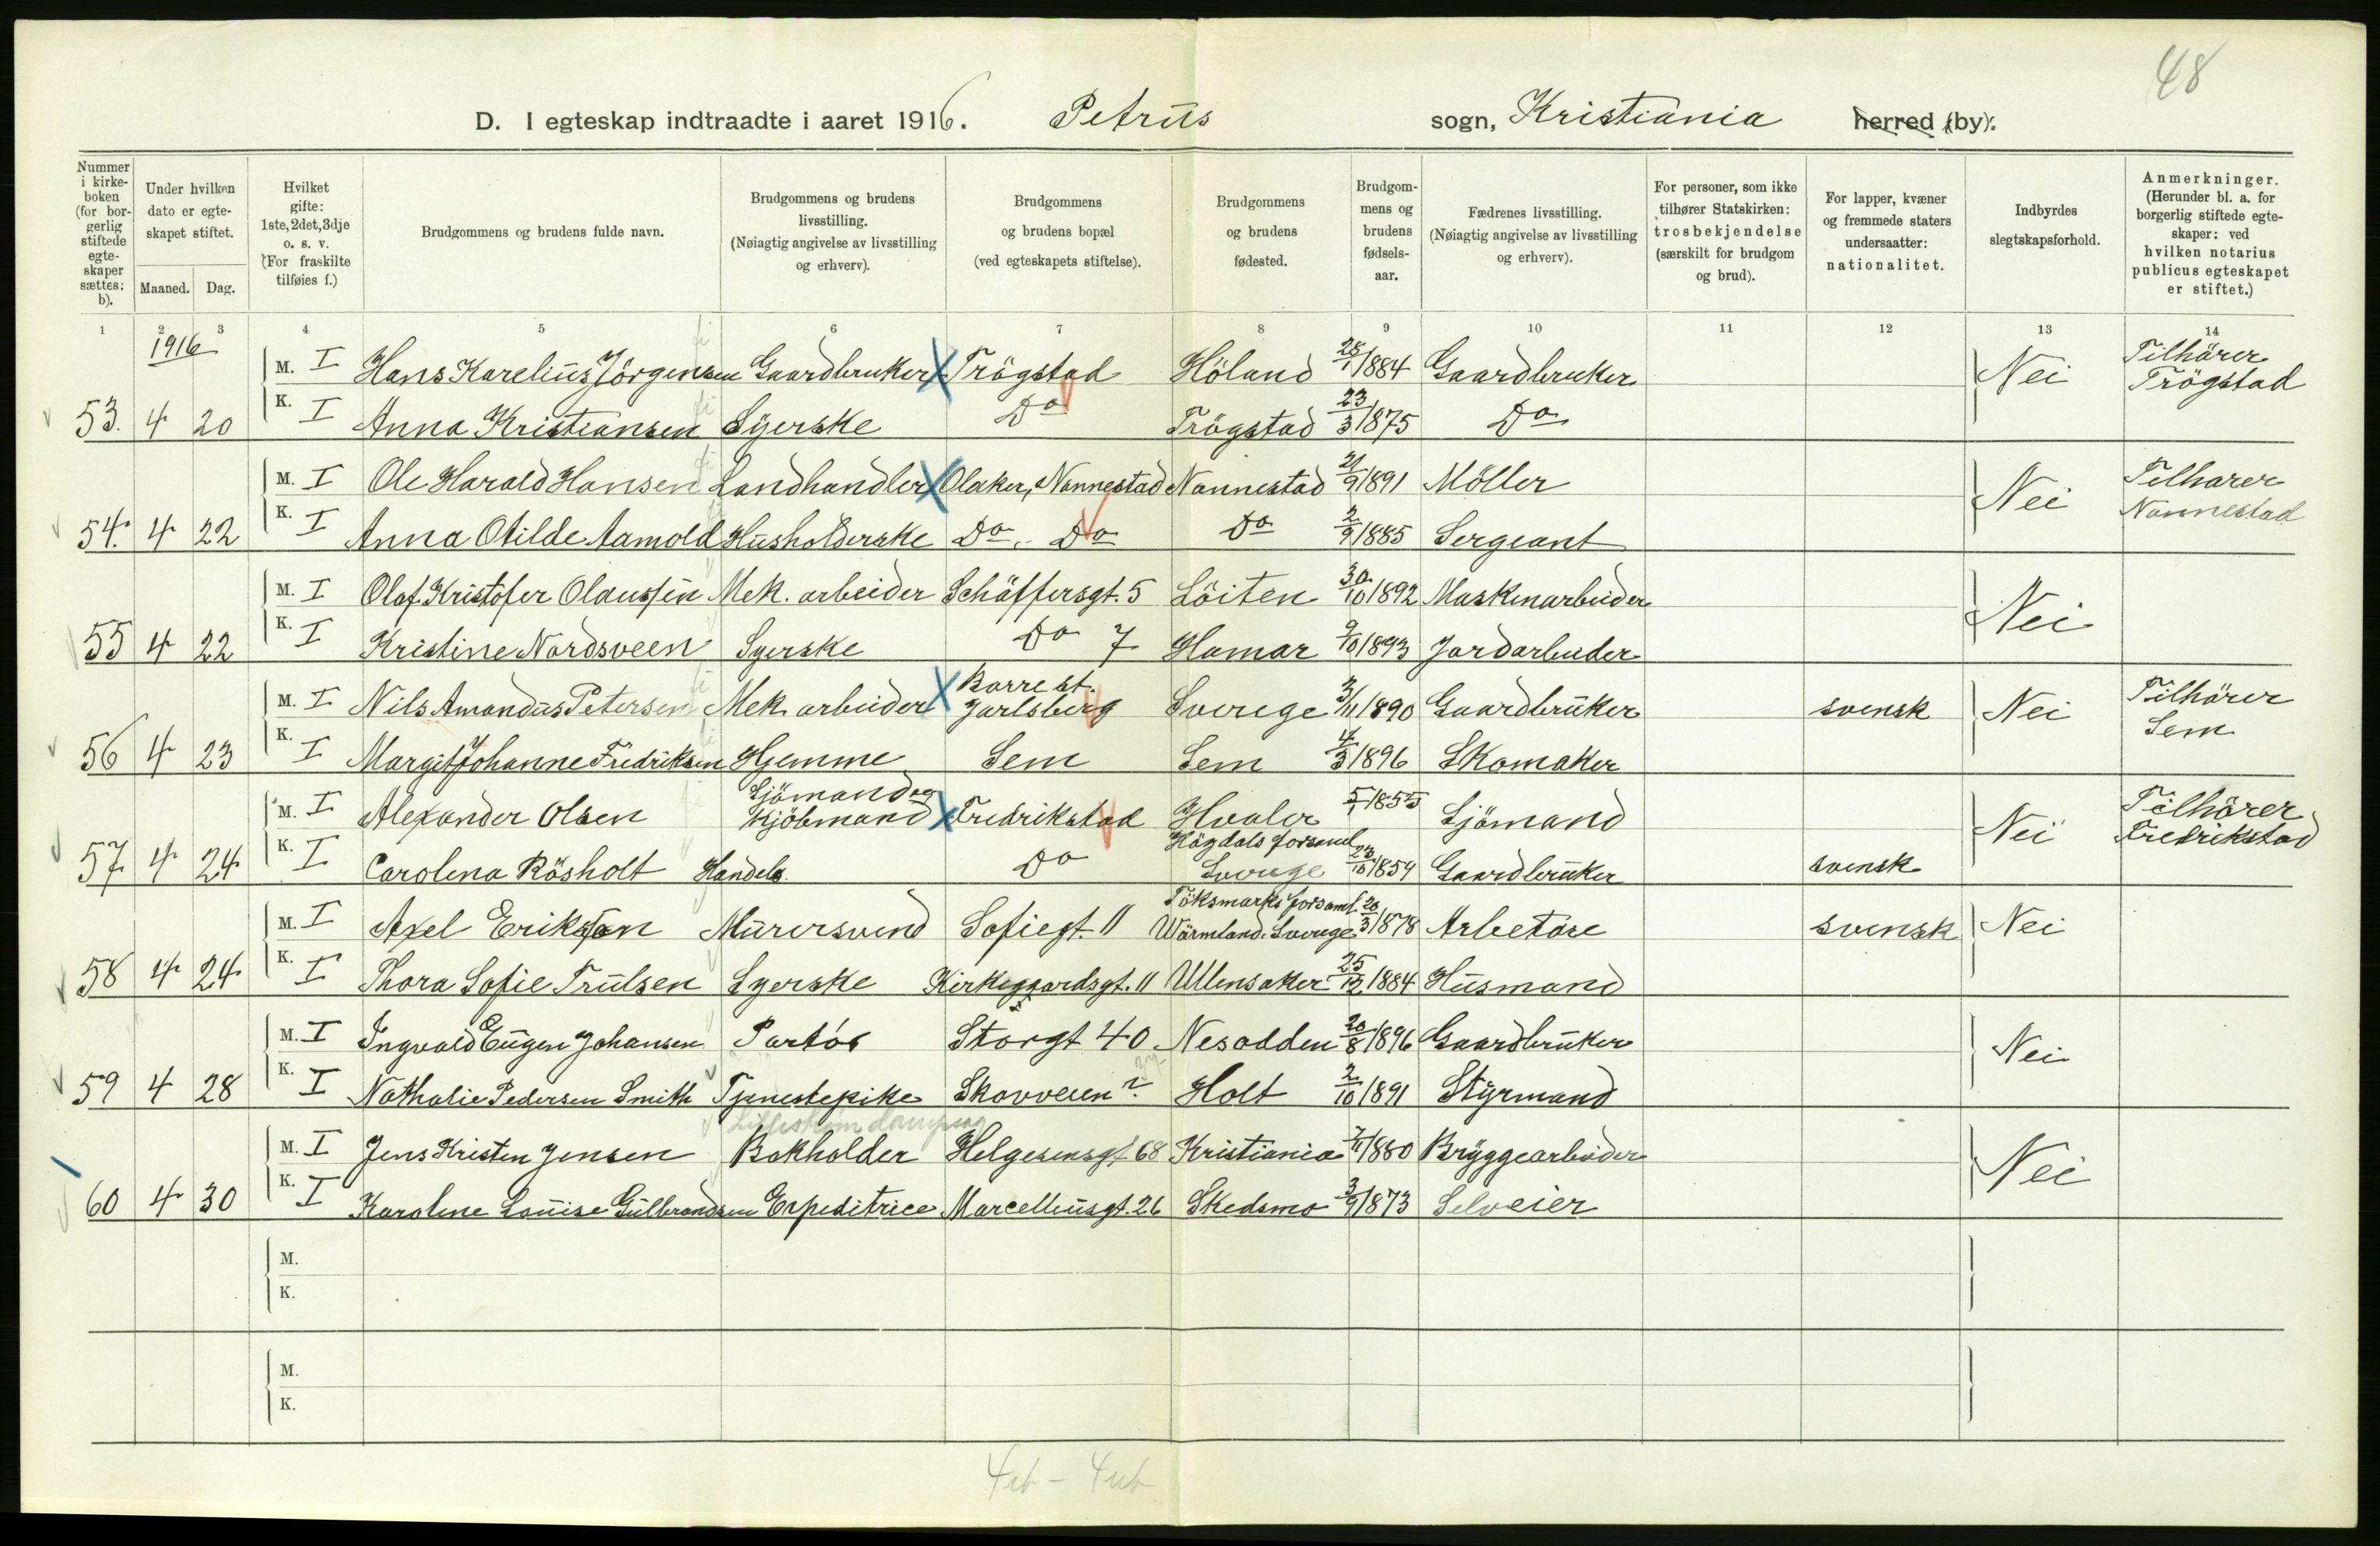 48
D. I egteskap indtraadte i aaret 1916. Petrus sogn, Kristiania herred (by).
Nummer i kirkeboken (for borgerlig stiftede egteskaper sættes: b).
Under hvilken dato er egteskapet stiftet.
Maaned. Dag.
Hvilket gifte: 1ste, 2det, 3dje o. s. v. (For fraskilte tilføies f.)
Brudgommens og brudens fulde navn.
Brudgommens og brudens livsstilling. (Nøiagtig angivelse av livsstilling og erhverv).
Brudgommens og brudens bopæl (ved egteskapets stiftelse).
Brudgommens og brudens fødested.
Brudgommens og brudens fødselsaar.
Fædrenes livsstilling. (Nøiagtig angivelse av livsstilling og erhverv).
For personer, som ikke tilhører Statskirken: trosbekjendelse (særskilt for brudgom og brud).
For lapper, kvæner og fremmede staters undersaatter: nationalitet.
Indbyrdes slegtskapsforhold.
Anmerkninger. (Herunder bl. a. for borgerlig stiftede egteskaper: ved hvilken notarius publicus egteskapet er stiftet.)
1 2 3 4 5 6 7 8 9 10 11 12 13 14
1916
M. I Hans Karelius Jörgensen Gaardbruker Trögstad Höland 28/1 1884 Gaardbruker Nei Tilhörer Trögstad
53. 4 20 K. I Anna Kristiansen Syerske Do Trögstad 23/3 1875 Do
M. I Ole Harald Hansen Landhandler Olaker, Nannestad Nannestad 21/9 1891 Möller Nei Tilhører Nannestad
54. 4 22 K. I Anna Otilde Aamold Husholderske Do Do Do 2/9 1885 Sergeant
M. I Olaf Kristofer Olaussen Mek. arbeider Schäffersgt. 5 Löiten 30/10 1892 Maskinarbeider Nei
55 4 22 K. I Kristine Nordsveen Syerske Do 7 Hamar 9/10 1893 Jordarbeider
M. I Nils Amandus Petersen Mek. arbeider Borre st. Jarlsberg Sverige 3/11 1890 Gaardbruker svensk Nei Tilhörer Sem
56 4 23 K. I Margit Johanne Fredriksen Hjemme Sem Sem 4/3 1896 Skomaker
M. I Alexander Olsen Sjömand og Kjöbmand Fredrikstad Hvaler 5/1 1855 Sjömand Nei Tilhörer Fredrikstad
57 4 24 K. I Carolina Rösholt Handels. Do Högdals forsaml Sverige 23/10 1859 Gaardbruker svensk
M. I Axel Erikson Murersvend Sofiegt. 11 Töksmarks forsaml. Wärmland. Sverige 20/3 1878 Arbetare svensk Nei
58 4 24 K. I Thora Sofie Trulsen Syerske Kirkegaardsgt. 11 Ullensaker 25/12 1884 Husmand
M. I Ingvald Eugen Johansen Portör Storgt 40 Nesodden 20/8 1896 Gaardbruker Nei
59 4 28 K. I Nathalie Pedersen Smith Tjenestepike Skovveien ? Holt 2/10 1891 Styrmand
M. I Jens Kristen Jensen Bokholder Helgesensgt 68 Kristiania 7/11 1880 Bryggearbeider Nei
60 4 30 K. I Karoline Louise Gulbrandsen Expeditrice Marcellusgt. 26 Skedsmo 3/9 1873 Selveier
M.
K.
M.
K.